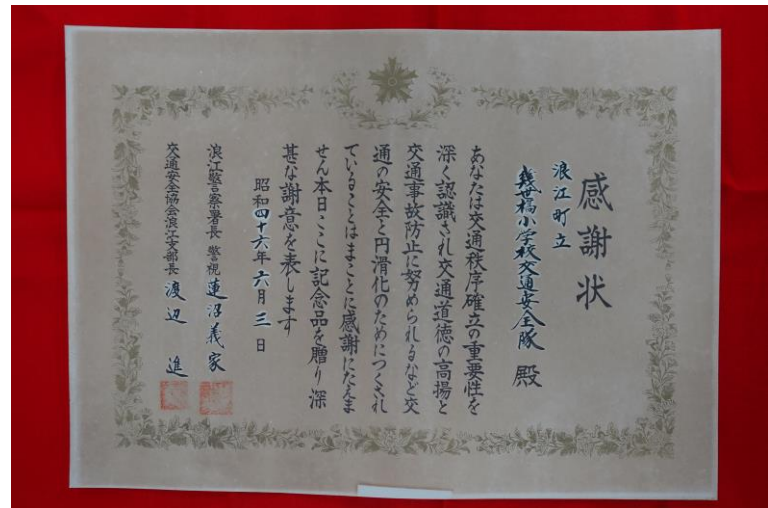 感謝状
浪江町立
幾世橋小学校交通安全隊 殿
あなたは交通秩序確立の重要性を
深く認識され交通道徳の高揚と
交通事故防止に努められるなど交
通の安全と円滑化のためにつくされ
ていることはまことに感謝にたえま
せん本日ここに記念品を贈り深
甚な謝意を表します
昭和四十六年六月三日
浪江警察署長 警視 蓮沼義家
交通安全協会浪江支部長 渡辺 進